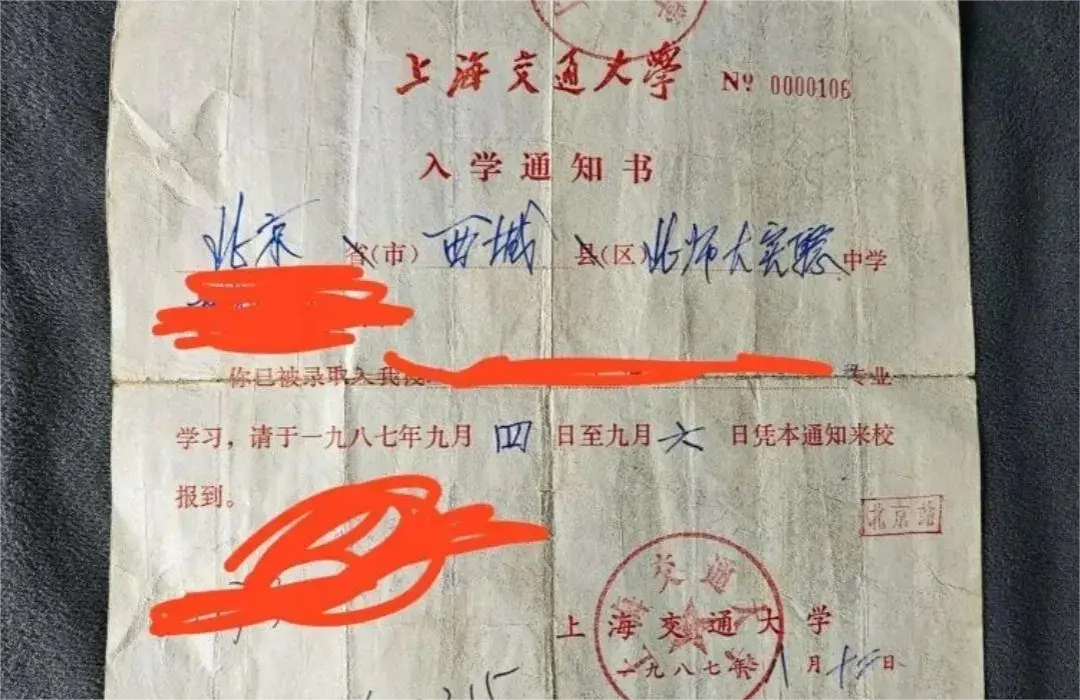 上海交通大學 № 0000106
入学通知书
北京省(市)西城县(区)北师大实验中学
你已被录取入我校 专业
学习，请于一九八七年九月四日至九月六日凭本通知来校
报到。
北京站
交通
上海交通大学
一九八七年八月十二日
215